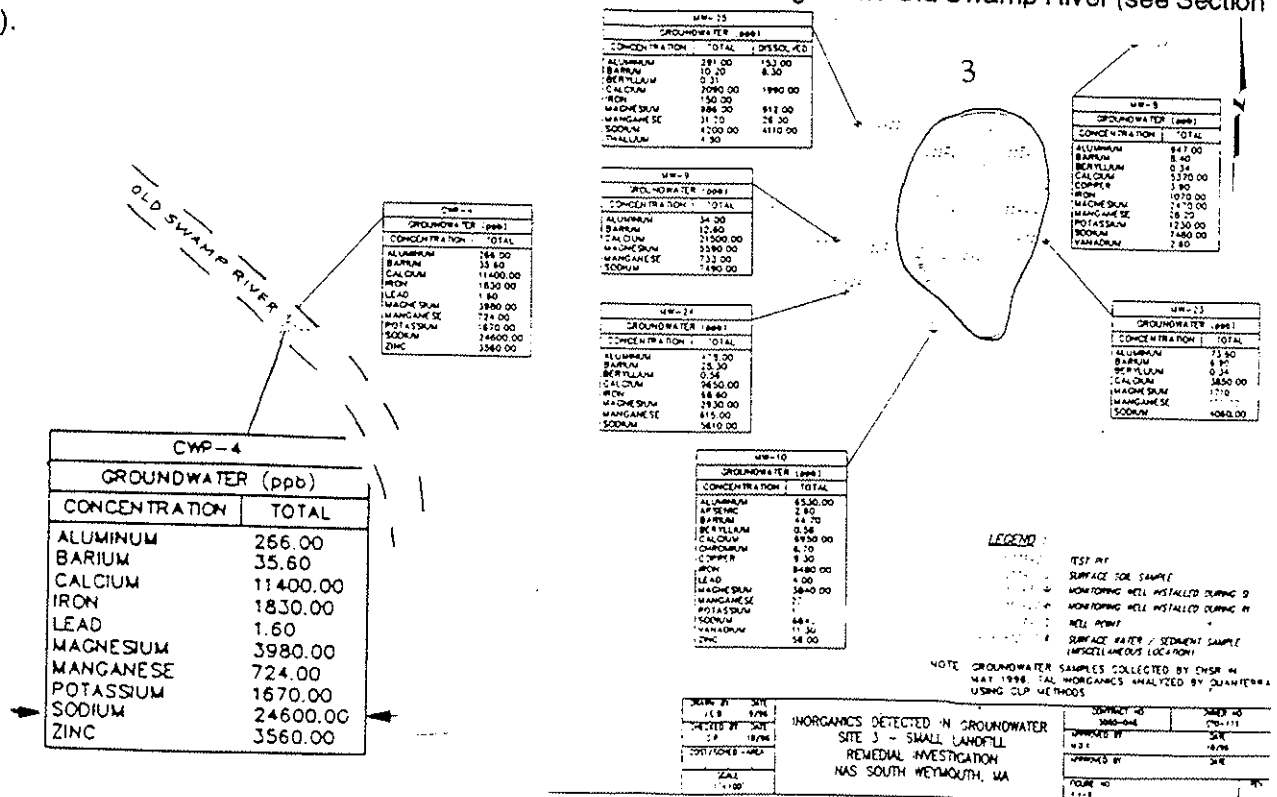 Old Swamp River (see Section
).
3
OLD SWAMP RIVER
CWP-4
GROUNDWATER (ppb)
CONCENTRATION TOTAL
ALUMINUM 266.00
BARIUM 35.60
CALCIUM 11400.00
IRON 1830.00
LEAD 1.60
MAGNESIUM 3980.00
MANGANESE 724.00
POTASSIUM 1670.00
SODIUM 24600.00
ZINC 3560.00
CWP-4
GROUNDWATER (ppb)
CONCENTRATION TOTAL
ALUMINUM 266.00
BARIUM 35.60
CALCIUM 11400.00
IRON 1830.00
LEAD 1.60
MAGNESIUM 3980.00
MANGANESE 724.00
POTASSIUM 1670.00
SODIUM 24600.00
ZINC 3560.00
MW-25
GROUNDWATER (ppb)
CONCENTRATION TOTAL DISSOLVED
ALUMINUM 291.00 153.00
BARIUM 10.20 8.30
BERYLLIUM 0.31
CALCIUM 2090.00 1990.00
IRON 150.00
MAGNESIUM 986.00 912.00
MANGANESE 31.20 28.30
SODIUM 4200.00 4110.00
THALLIUM 4.90
MW-9
GROUNDWATER (ppb)
CONCENTRATION TOTAL
ALUMINUM 34.00
BARIUM 12.60
CALCIUM 21500.00
MAGNESIUM 5590.00
MANGANESE 733.00
SODIUM 7490.00
MW-24
GROUNDWATER (ppb)
CONCENTRATION TOTAL
ALUMINUM 475.00
BARIUM 25.30
BERYLLIUM 0.56
CALCIUM 9650.00
IRON 68.60
MAGNESIUM 2930.00
MANGANESE 615.00
SODIUM 5610.00
MW-10
GROUNDWATER (ppb)
CONCENTRATION TOTAL
ALUMINUM 6530.00
ARSENIC 2.60
BARIUM 44.70
BERYLLIUM 0.56
CALCIUM 6950.00
CHROMIUM 6.70
COPPER 9.30
IRON 8480.00
LEAD 4.00
MAGNESIUM 3840.00
MANGANESE
POTASSIUM
SODIUM
VANADIUM 11.30
ZINC 58.00
GROUNDWATER (ppb)
CONCENTRATION TOTAL
ALUMINUM 947.00
BARIUM 8.40
BERYLLIUM 0.34
CALCIUM 5370.00
COPPER 3.90
IRON 1070.00
MAGNESIUM 2470.00
MANGANESE 28.20
POTASSIUM 1230.00
SODIUM 7460.00
VANADIUM 2.60
MW-23
GROUNDWATER (ppb)
CONCENTRATION TOTAL
ALUMINUM 73.60
BARIUM
BERYLLIUM 0.34
CALCIUM 3850.00
MAGNESIUM 1710
MANGANESE
SODIUM 4060.00
LEGEND:
TEST PIT
SURFACE SOIL SAMPLE
MONITORING WELL INSTALLED DURING SI
MONITORING WELL INSTALLED DURING RI
WELL POINT
SURFACE WATER / SEDIMENT SAMPLE
(MISCELLANEOUS LOCATION)
NOTE GROUNDWATER SAMPLES COLLECTED BY ENSR IN
MAY 1996. TAL INORGANICS ANALYZED BY QUANTERRA
USING CLP METHODS
DRAWN BY DATE
9/96
CHECKED BY DATE
10/96
COST/SCHED-AREA
SCALE
INORGANICS DETECTED IN GROUNDWATER
SITE 3 - SMALL LANDFILL
REMEDIAL INVESTIGATION
NAS SOUTH WEYMOUTH, MA
CONTRACT NO OWNER NO
APPROVED BY DATE
10/96
APPROVED BY DATE
FIGURE NO REV